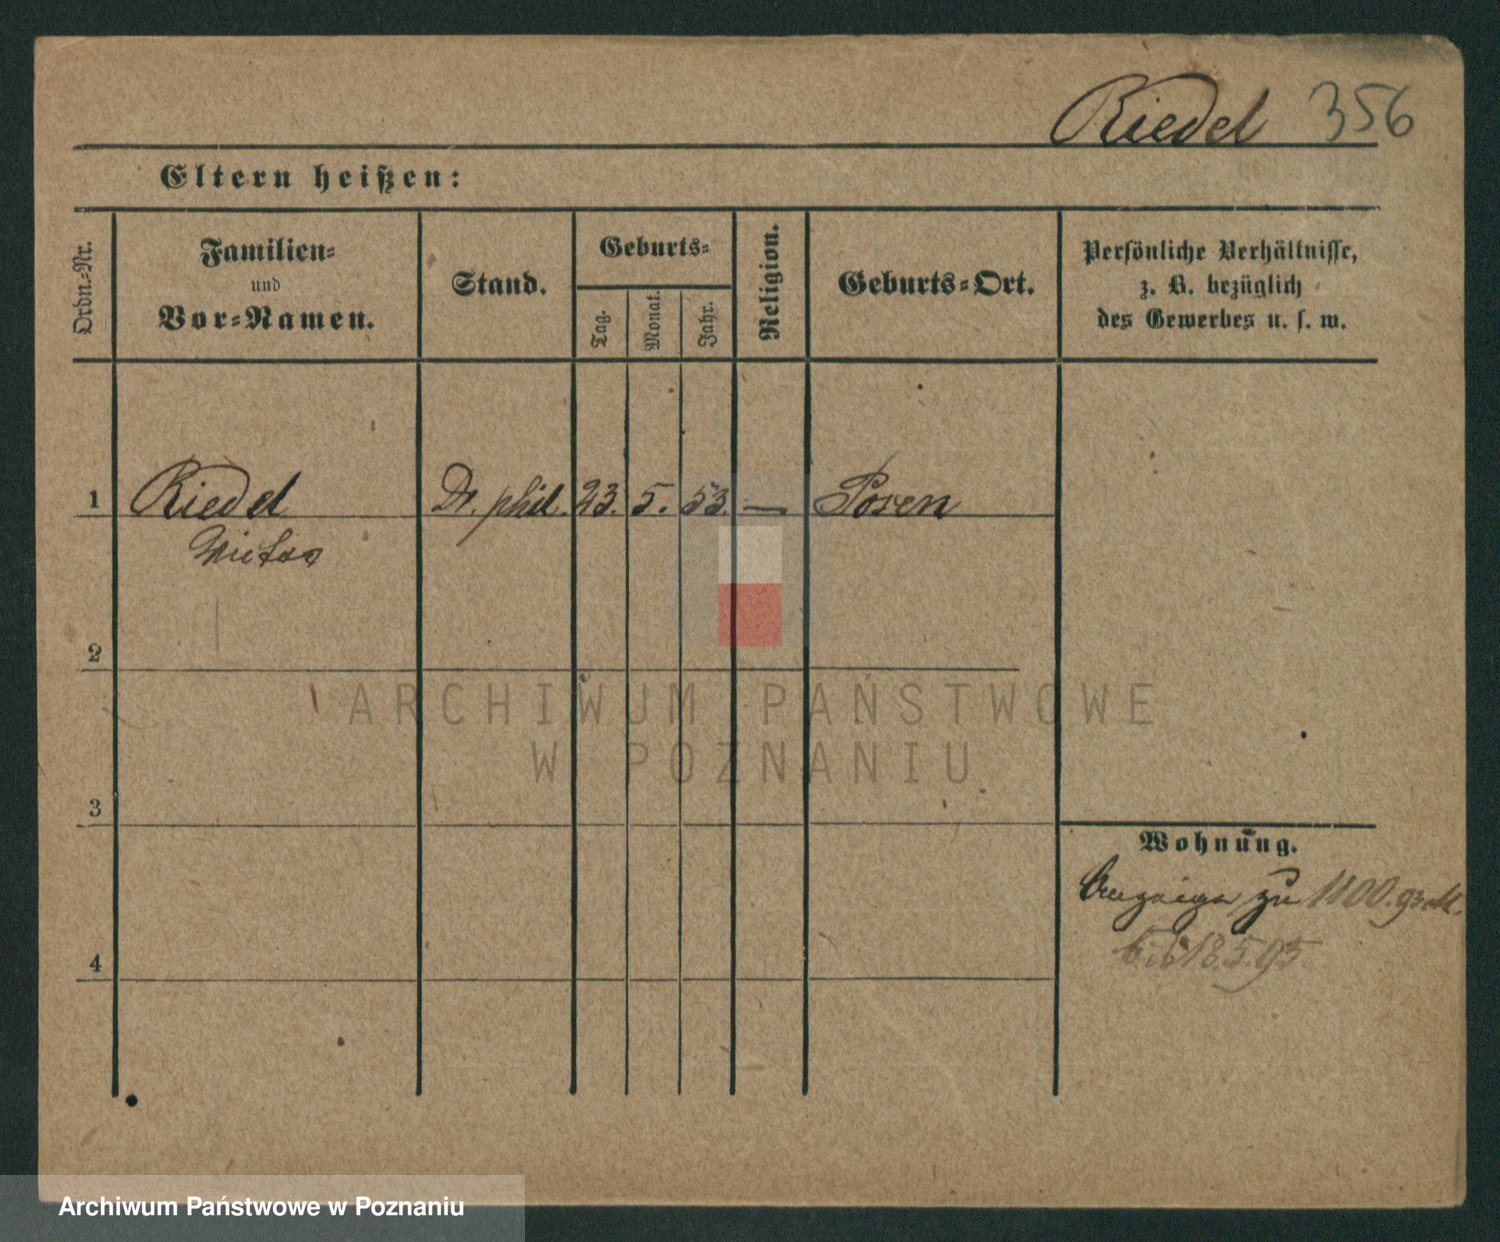 Riedel 356
Eltern heißen:
Ordn.-Nr.
Familien-
und
Vor-Namen.
Stand.
Geburts-
Tag.
Monat.
Jahr.
Religion.
Geburts-Ort.
Persönliche Verhältnisse,
z. B. bezüglich
des Gewerbes u. s. w.
1 Riedel Dr. phil. 23. 5. 53. — Posen
2
3
4
Wohnung.
zu 1100.
18.5.95
ARCHIWUM PAŃSTWOWE
W POZNANIU
Archiwum Państwowe w Poznaniu